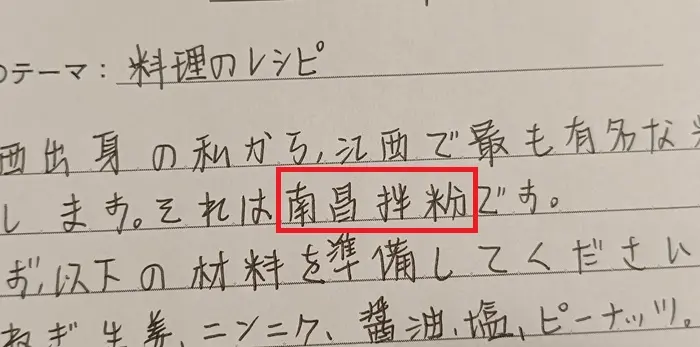 のテーマ：料理のレシピ
西出身の私から，江西で最も有名な
します。それは南昌拌粉です。
ず，以下の材料を準備してください
ねぎ，生姜，ニンニク，醤油，塩，ピーナッツ。